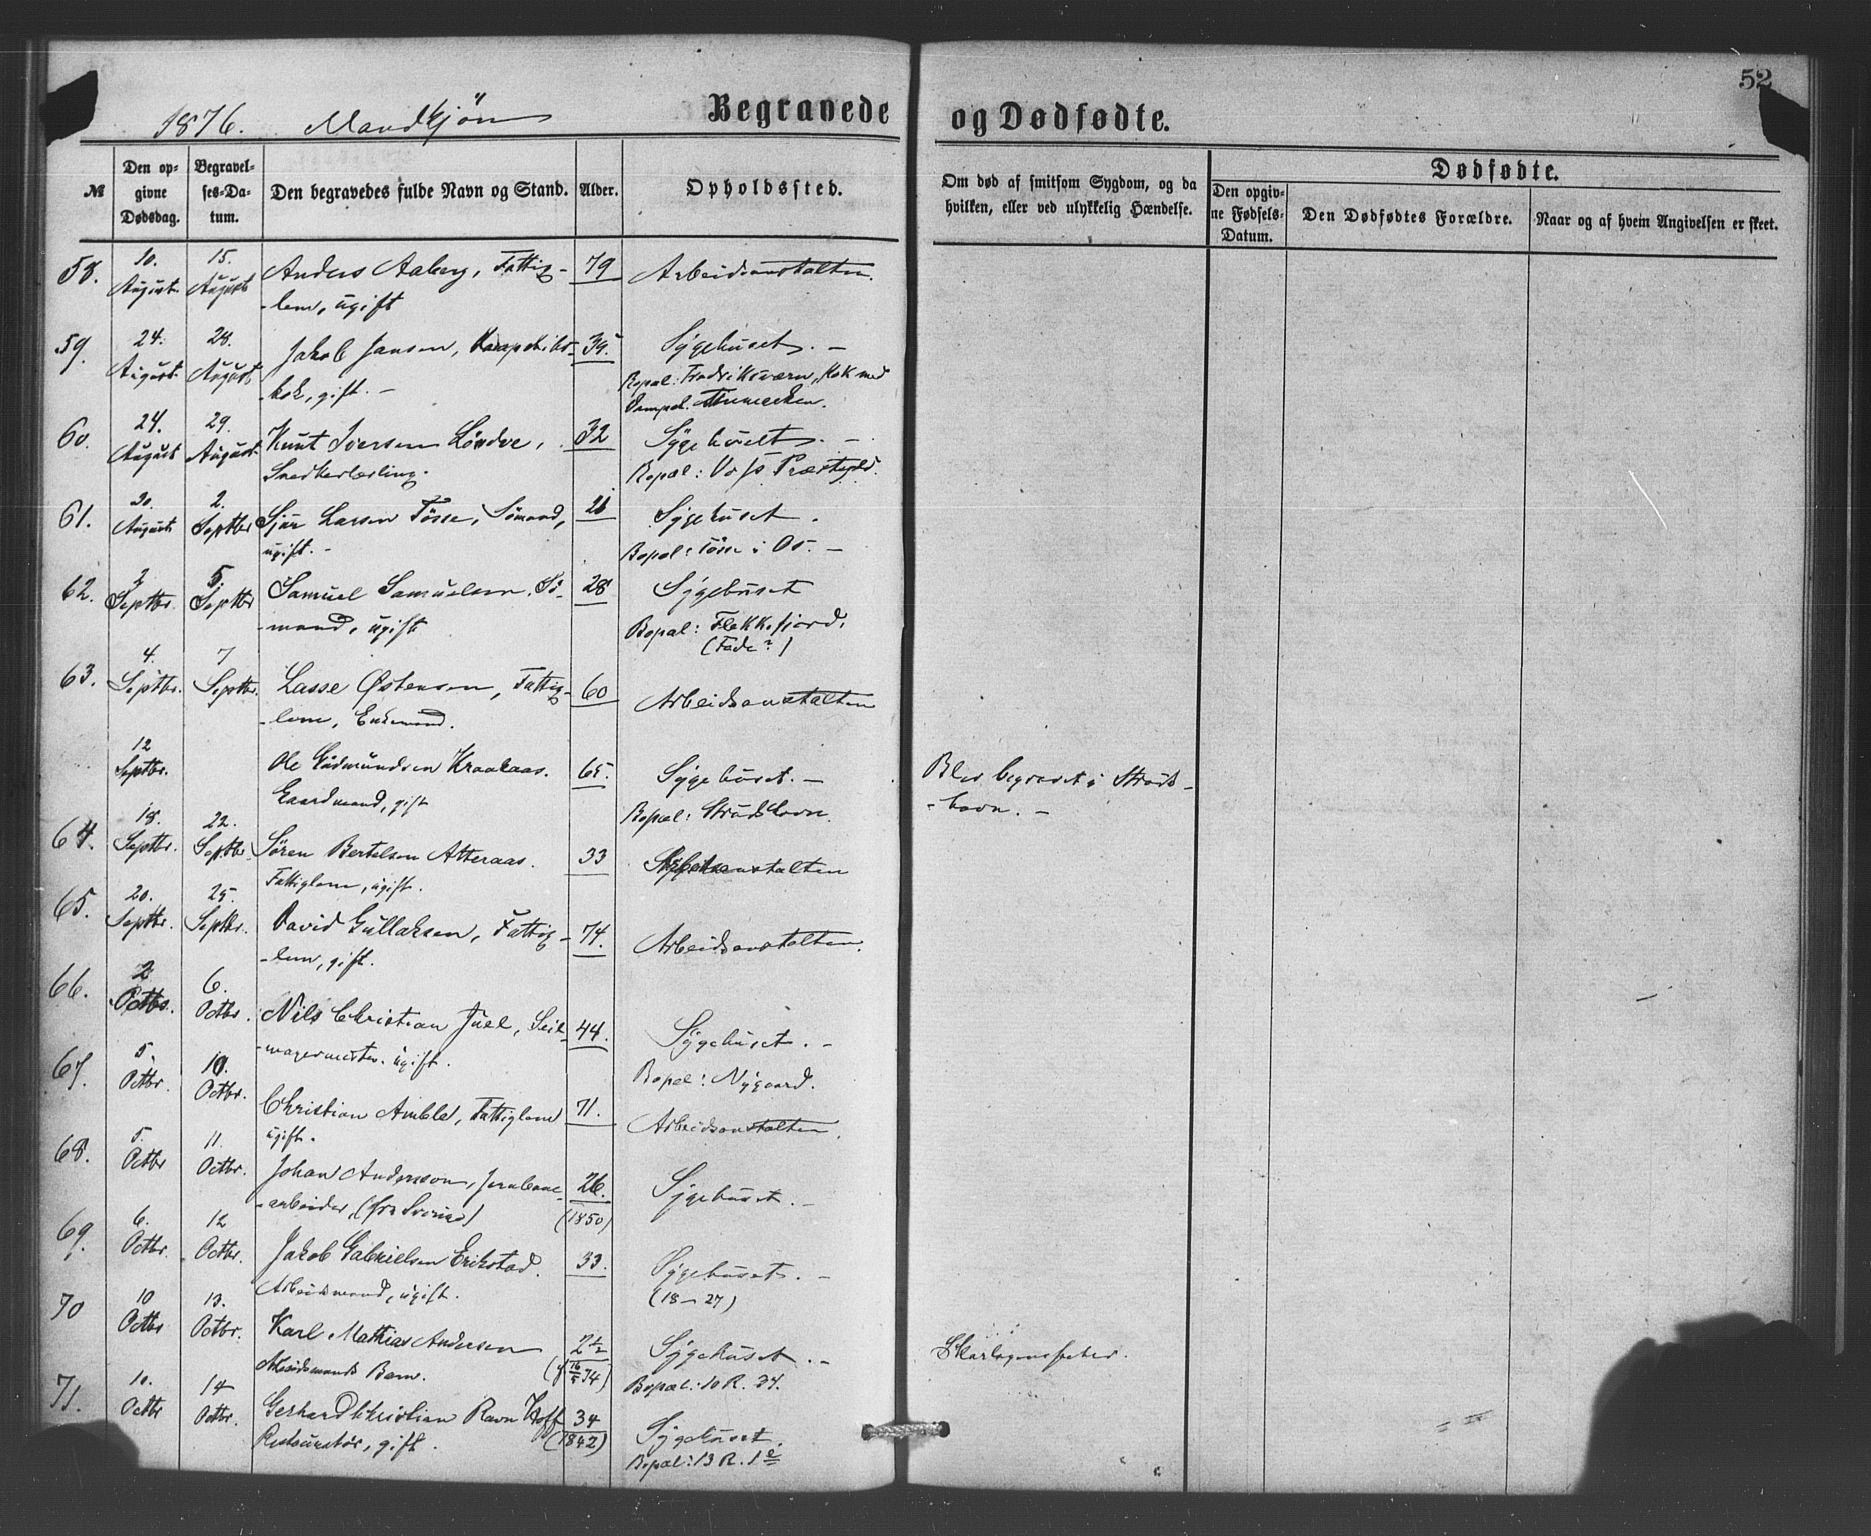 52
1876. Mandkjøn Begravede og Dødfødte.
№ Den opgivne Dødsdag. Begravelses-Datum. Den begravedes fulde Navn og Stand. Alder. Opholdssted. Om død af smitsom Sygdom, og da hvilken, eller ved ulykkelig Hændelse. Dødfødte. Den opgivne Fødsels-Datum. Den Dødfødtes Forældre. Naar og af hvem Angivelsen er skeet.
58. 10. August 15. August Anders Aaberg, Fattig- 79 Arbeidsanstalten.
-lem, ugift
59. 24. August 28. August Jakob Jansen, 35. Sygehuset. -
kok, gift. - Bopæl: Fredriksværn, Kok med
Dampsk.
60. 24. August 29. August Knut Iversen Löndve, 32 Sygehuset. -
Snedkerlærling. Bopæl: Voss Præstegjeld.
61. 30. August 2. Septbr Sjur Larsen Tösse, Sömand, 26 Sygehuset.
ugift. - Bopæl: Tösse i Os. -
62. 2 Septbr. 5. Septbr Samuel Samuelsen, Sö- 28 Sygehuset
-mand, ugift Bopæl: Flekkefjord.
(Fede?)
63. 4. Septbr. 7 Septbr. Lasse Østensen, Fattig- 60 Arbeidsanstalten
-lem, Enkemand.
12 Septbr. Ole Gudmundsen Kraakaas. 65. Sygehuset. - Blev begravet i Struds-
Gaardmand, gift Bopæl: Strudshavn. -havn. -
64. 18. Septbr. 22. Septbr. Sören Bertelsen Atteraas. 33 Arbeidsanstalten
Fattiglem, ugift.
65. 20. Septbr. 25. Septbr. David Gullaksen, Fattig- 74. Arbeidsanstalten.
-lem, gift.
66. 2 Octbr. 6. Octbr. Nils Christian Juel, Seil- 44. Sygehuset. -
-magermester. ugift. Bopæl: Nygaard.
67. 5 Octbr. 10. Octbr. Christian Amble, Fattiglem 71. Arbeidsanstalten.
ugift.
68. 5. Octbr 11. Octbr. Johan Andersson, Jernbane- 26. Sygehuset. -
-arbeider, (fra Sverige) (1850)
69. 6. Octbr. 12 Octbr. Jakob Gabrielsen Erikstad. 33. Sygehuset. -
Arbeidsmand, ugift. (18-27)
70 10 Octbr 13. Octbr. Karl Mathias Andersen 2½ Sygehuset. - Skarlagensfeber.
Arbeidsmands Barn. (f 16/5 74) Bopæl: 10 R. 24.
71. 10. Octbr 14 Octbr. Gerhard Christian Ravn Hoff 34 Sygehuset.
Restauratör, gift. (1842) Bopæl: 13 R. 1 e